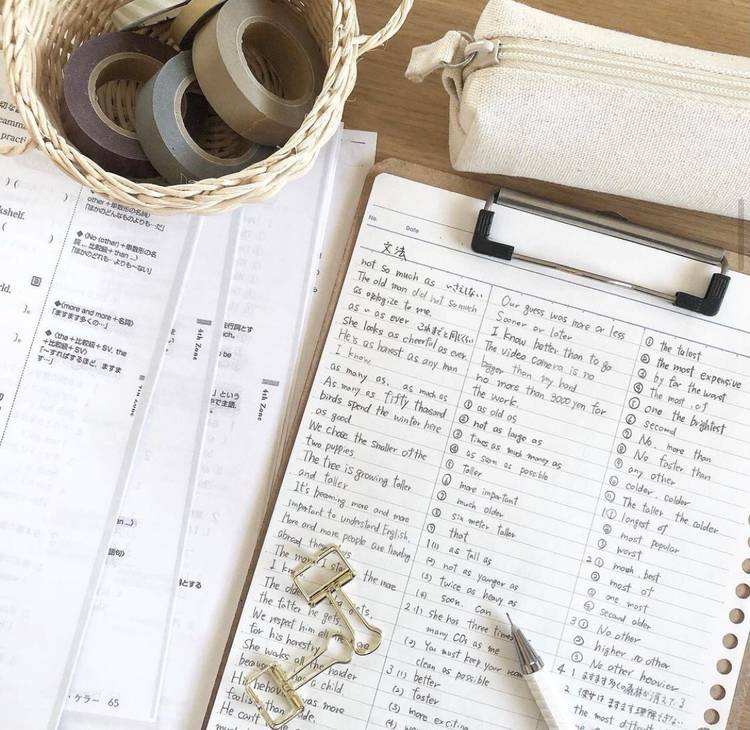 No.
Date
文法
not so much as
The old man did not so much
as apologize to me.
as ~ as ever
She looks as cheerful as ever.
He is as honest as any man
I know
as many as, as much as
As many as fifty thousand
birds spend the winter here
as good
We chose the smaller of the
two puppies
The tree is growing taller
and taller
It's becoming more and more
important to understand English.
More and more people are traveling
abroad
The more I
the more
The older
gets,
the fatter he gets.
We respect him all the
for his honesty
She walks all the harder
a child.
He
was more
He can't
Our guess was more or less
Sooner or later
I know better than to go
The video camera is no
bigger than my hand
no more than 3000 yen for
the work.
① as old as
② not as large as
③ times as much money as
④ as soon as possible
⑤ taller
⑥ more important
⑦ much older
⑧ six meter taller
⑨ that
1 (1) as tall as
(2) not as younger as
(3) twice as heavy as
(4) soon. can
2 (1) she has three times
many CDs as me
(2) You must keep your
clean as possible
3 (1) better
(2) faster
(3) more exciting
(4)
① the talest
② the most expensive
③ by far the worst
④ The most. of
⑤ one the brightest
⑥ second
⑦ No. more than
⑧ No faster than
⑨ any other
⑩ colder. colder
⑪ The taller the colder
⑫ longest of
⑬ most popular
⑭ worst
2 ① much. best
② most of
③ one most
④ second older
3 ① No other
② higher. no other
③ No other heavier
4. 1
2
the most difficult
other＋単数形の名詞)
「ほかのどんなものよりも…だ」
◆(No (other)＋単数形の名
詞 … 比較級＋than ...)
「ほかのどれも…よりも～ない」
◆(more and more＋名詞)
「ますます多くの…」
◆(the＋比較級＋SV, the
＋比較級＋SV)
「～すればするほど、ますま
す…」
kshelf.
rld.
4th Zone
4th Zone
be
という
で主語.
語句)
とする
ケラー 65
practi